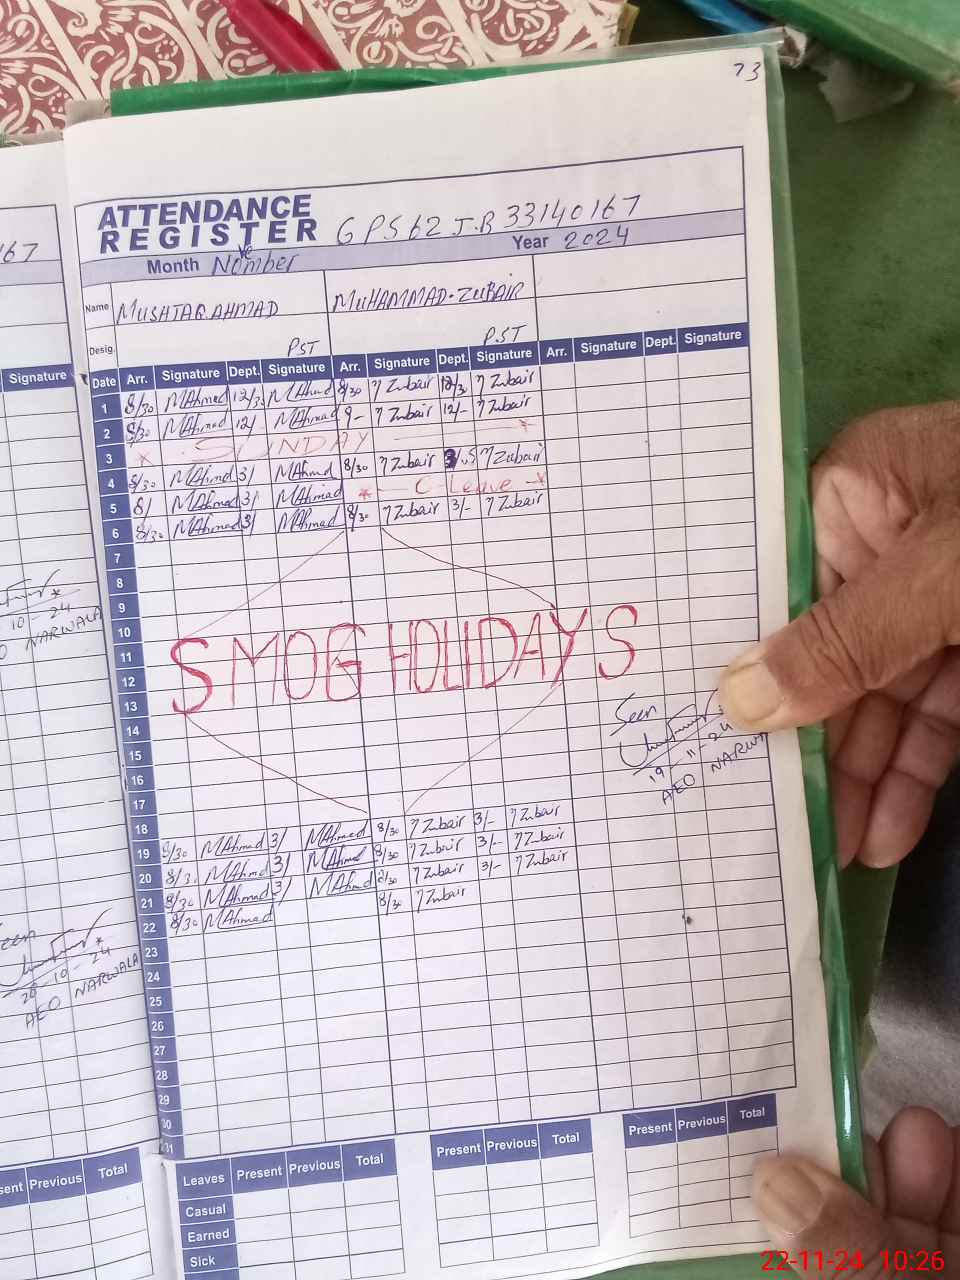 73
ATTENDANCE
REGISTER GPS 62 J.B 33140167
Month November Year 2024
Name MUSHTAQ AHMAD MUHAMMAD. ZUBAIR
Desig. PST PST
Date Arr. Signature Dept. Signature Arr. Signature Dept. Signature Arr. Signature Dept. Signature
1 8/30 MAhmad 12/3 MAhmad 8/30 Zubair 12/3 Zubair
2 8/30 MAhmad 12/ MAhmad 9- Zubair 12/- Zubair
3 * SUNDAY *
4 8/30 MAhmad 3/ MAhmad 8/30 Zubair Zubair
5 8/ MAhmad 3/ MAhmad * C-Leave *
6 8/30 MAhmad 3/ MAhmad 8/30 Zubair 3/- Zubair
7
8
9
10
11
SMOG HOLIDAYS
12
13
14
15
16
17
18
19 8/30 MAhmad 3/ MAhmad 8/30 Zubair 3/- Zubair
20 8/3 MAhmad 3/ MAhmad 8/30 Zubair 3/- Zubair
21 8/30 MAhmad 3/ MAhmad 8/30 Zubair 3/- Zubair
22 8/30 MAhmad 8/30 Zubair
23
24
25
26
27
28
29
30
31
Seen
19-11-24
AEO NARWA
Leaves Present Previous Total
Casual
Earned
Sick
Present Previous Total
Present Previous Total
167
Signature
10-24
O NARWALA
een
28-10-24
AEO NARWALA
sent Previous Total
22-11-24 10:26